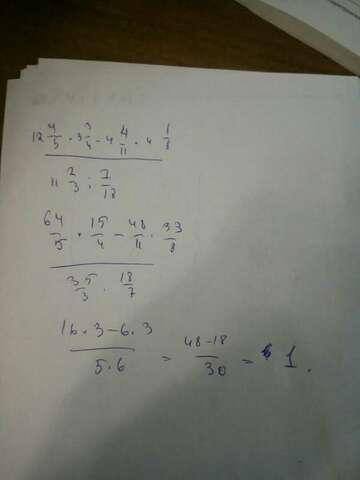 12 4/5 · 3 3/4 - 4 4/11 · 4 1/8
11 2/3 : 7/18
64/5 · 15/4 - 48/11 · 33/8
35/3 · 18/7
16·3-6·3
5·6
= 48-18
30
= 1.